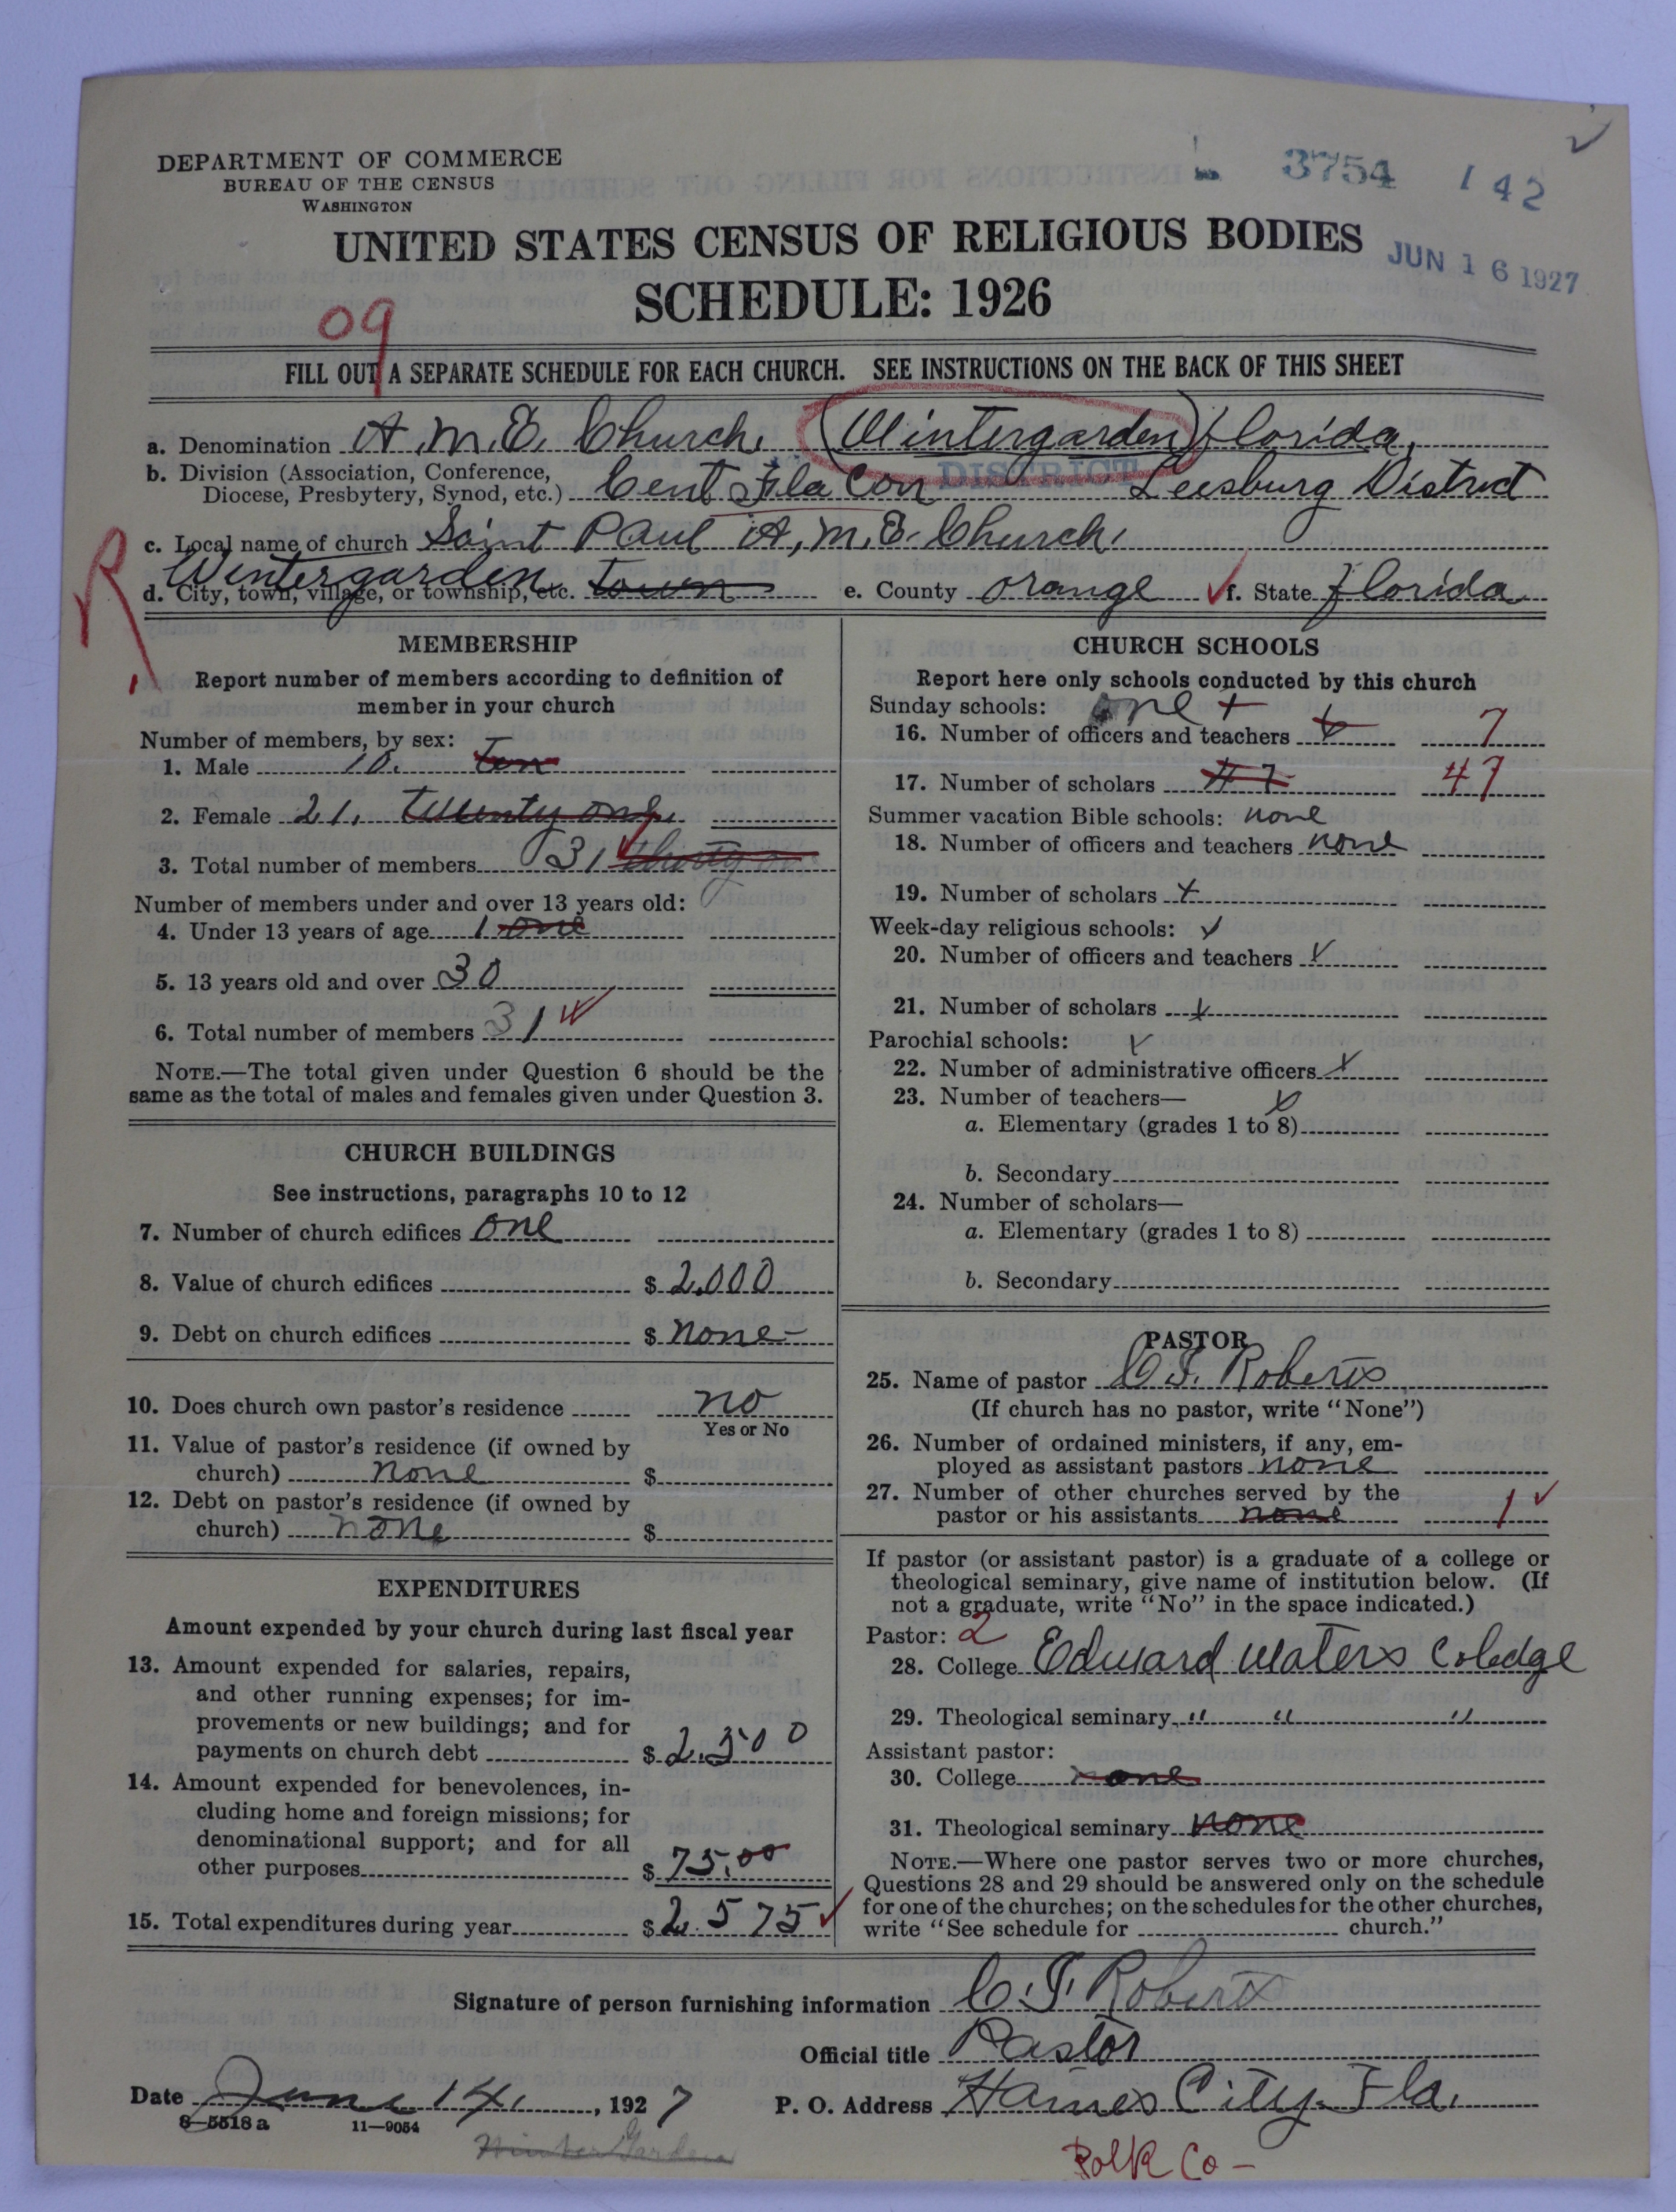 DEPARTMENT OF COMMERCE
BUREAU OF THE CENSUS
WASHINGTON
3754 142
UNITED STATES CENSUS OF RELIGIOUS BODIES
JUN 16 1927
SCHEDULE: 1926
09
FILL OUT A SEPARATE SCHEDULE FOR EACH CHURCH. SEE INSTRUCTIONS ON THE BACK OF THIS SHEET
a. Denomination A.M.E. Church, (Wintergarden) Florida,
b. Division (Association, Conference,
Diocese, Presbytery, Synod, etc.) Cent Fla Con DISTRICT Leesburg District
c. Local name of church Saint Paul A.M.E. Church,
R
d. City, town, village, or township, etc. Wintergarden town e. County Orange f. State Florida
MEMBERSHIP
Report number of members according to definition of
member in your church
Number of members, by sex:
1. Male 10. ten
2. Female 21. twenty one
3. Total number of members 31
Number of members under and over 13 years old:
4. Under 13 years of age 1 one
5. 13 years old and over 30
6. Total number of members 31
NOTE.—The total given under Question 6 should be the
same as the total of males and females given under Question 3.
CHURCH BUILDINGS
See instructions, paragraphs 10 to 12
7. Number of church edifices one
8. Value of church edifices $ 2,000
9. Debt on church edifices $ none
10. Does church own pastor's residence no
Yes or No
11. Value of pastor's residence (if owned by
church) none $
12. Debt on pastor's residence (if owned by
church) none $
EXPENDITURES
Amount expended by your church during last fiscal year
13. Amount expended for salaries, repairs,
and other running expenses; for im-
provements or new buildings; and for
payments on church debt $ 2.500
14. Amount expended for benevolences, in-
cluding home and foreign missions; for
denominational support; and for all
other purposes $ 75.00
15. Total expenditures during year $ 2.575
CHURCH SCHOOLS
Report here only schools conducted by this church
Sunday schools: one
16. Number of officers and teachers 7
17. Number of scholars 47 47
Summer vacation Bible schools: none
18. Number of officers and teachers none
19. Number of scholars x
Week-day religious schools: x
20. Number of officers and teachers x
21. Number of scholars x
Parochial schools: x
22. Number of administrative officers x
23. Number of teachers— x
a. Elementary (grades 1 to 8)
b. Secondary
24. Number of scholars—
a. Elementary (grades 1 to 8)
b. Secondary
PASTOR
25. Name of pastor C.J. Roberts
(If church has no pastor, write "None")
26. Number of ordained ministers, if any, em-
ployed as assistant pastors none
27. Number of other churches served by the
pastor or his assistants none 1
If pastor (or assistant pastor) is a graduate of a college or
theological seminary, give name of institution below. (If
not a graduate, write "No" in the space indicated.)
Pastor: 2
28. College Edward Waters Colledge
29. Theological seminary " " "
Assistant pastor:
30. College none
31. Theological seminary none
NOTE.—Where one pastor serves two or more churches,
Questions 28 and 29 should be answered only on the schedule
for one of the churches; on the schedules for the other churches,
write "See schedule for church."
Signature of person furnishing information C.J. Roberts
Official title Pastor
Date June 14, 1927 P. O. Address Haines City, Fla.
8—5518 a 11—9054
Winter Garden
Polk Co -